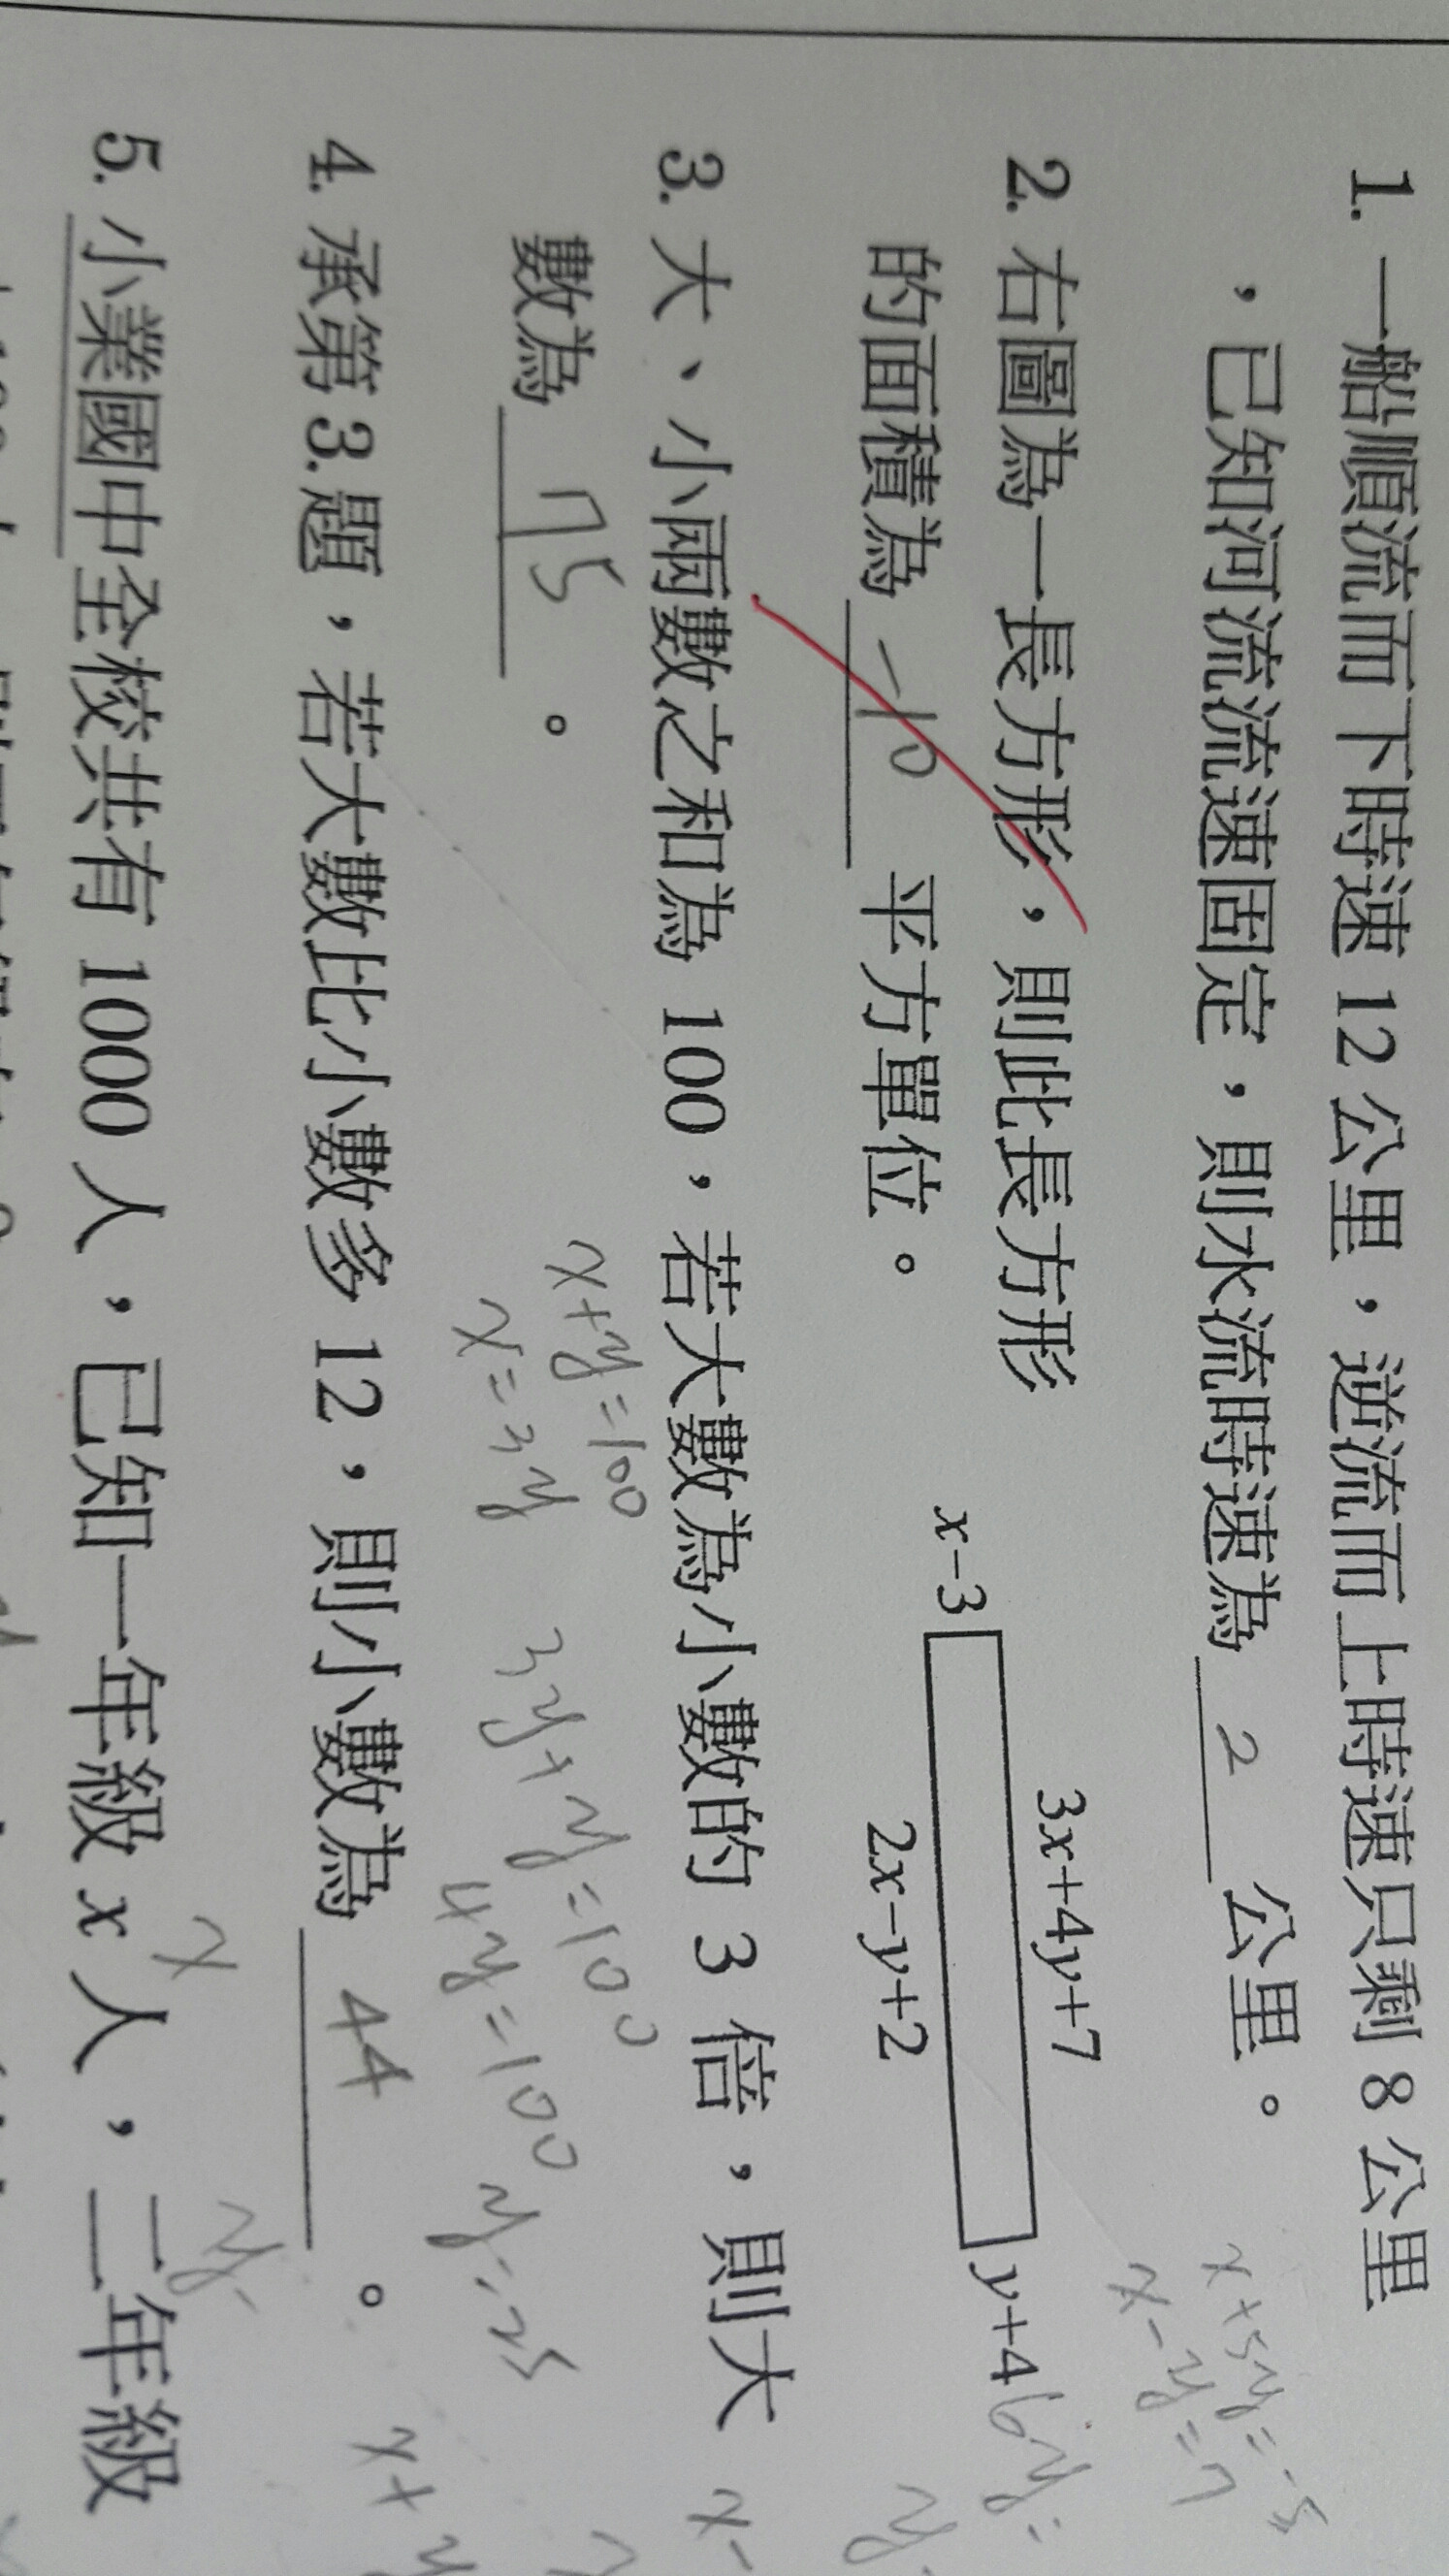 1. 一船順流而下時速 12 公里，逆流而上時速只剩 8 公里
，已知河流流速固定，則水流時速為 2 公里。
x+5y=-5
x-y=7
2. 右圖為一長方形，則此長方形
的面積為 -10 平方單位。
3x+4y+7
x-3
y+4
2x-y+2
6y=
3. 大、小兩數之和為 100，若大數為小數的 3 倍，則大
數為 75 。
x+y=100
x=3y
3y+y=100
4y=100
y=25
4. 承第 3. 題，若大數比小數多 12，則小數為 44 。
x+y
x
y
5. 小業國中全校共有 1000 人，已知一年級 x 人，二年級